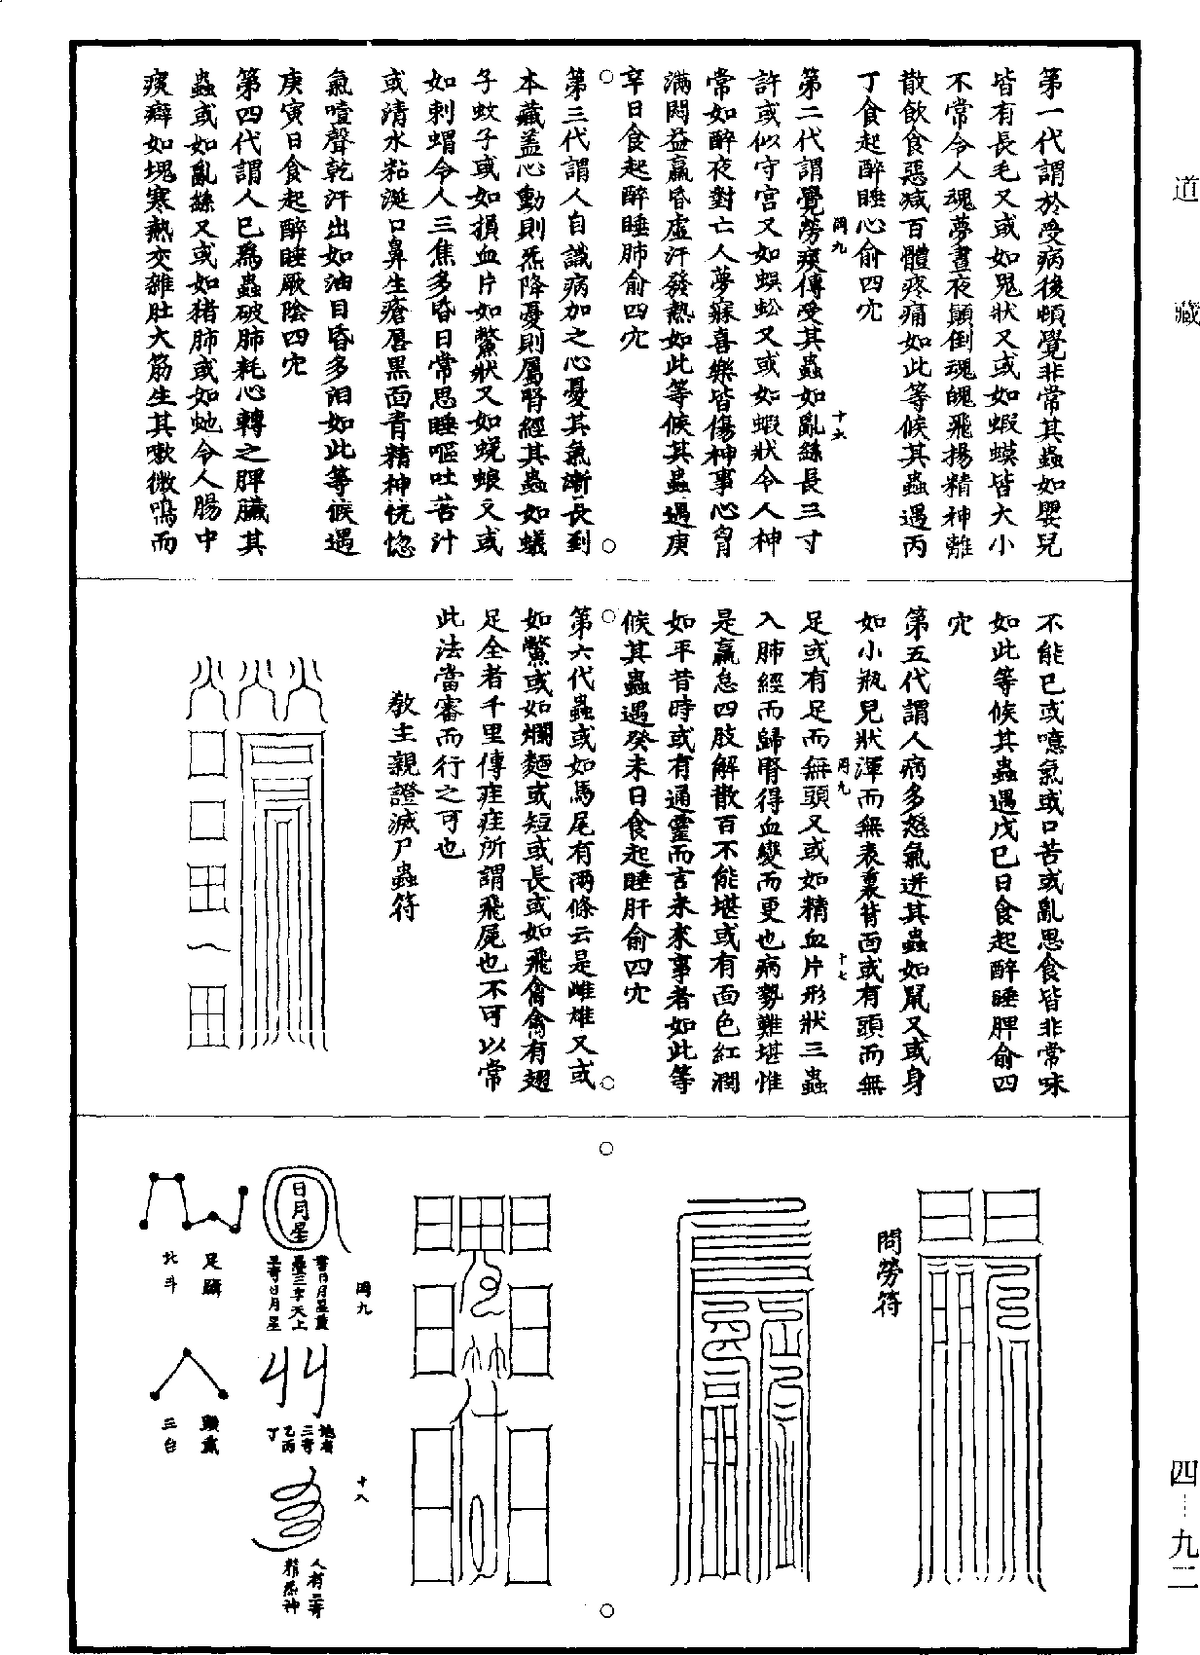 道藏
四—九二
第一代謂於受病後頓覺非常其蟲如嬰兒
皆有長毛又或如鬼狀又或如蝦蟆皆大小
不常令人魂夢晝夜顛倒魂魄飛揚精神離
散飲食惡減百體疼痛如此等候其蟲遇丙
丁食起醉睡心俞四穴
岡九
十六
第二代謂覺勞瘵傳受其蟲如亂絲長三寸
許或似守宮又如蜈蚣又或如蝦狀令人神
常如醉夜對亡人夢寐喜樂皆傷神事心胷
滿悶益羸昏虛汗發熱如此等候其蟲遇庚
辛日食起醉睡肺俞四穴
第三代謂人自識病加之心憂其氣漸長到
本藏蓋心動則炁降憂則屬腎經其蟲如蟻
子蚊子或如損血片如鱉狀又如蜣蜋又或
如刺蝟令人三焦多昏日常思睡嘔吐苦汁
或清水粘涎口鼻生瘡唇黑面青精神恍惚
氣噎聲乾汗出如油目昏多淚如此等候遇
庚寅日食起醉睡厥陰四穴
第四代謂人已為蟲破肺耗心轉之脾臟其
蟲或如亂絲又或如猪肺或如虵令人腸中
痰癖如塊寒熱交雜肚大筋生其嗽微嗚而
不能已或噫氣或口苦或亂思食皆非常味
如此等候其蟲遇戊己日食起醉睡脾俞四
穴
第五代謂人病多怒氣逆其蟲如鼠又或身
如小瓶兒狀渾而無表裏背面或有頭而無
岡九
十七
足或有足而無頭又或如精血片形狀三蟲
入肺經而歸腎得血變而更也病勢難堪惟
是羸怠四肢解散百不能堪或有面色紅潤
如平昔時或有通靈而言未來事者如此等
候其蟲遇癸未日食起睡肝俞四穴
第六代蟲或如馬尾有兩條云是雌雄又或
如鱉或如爛麵或短或長或如飛禽禽有翅
足全者千里傳疰疰所謂飛屍也不可以常
此法當審而行之可也
教主親證滅尸蟲符
問勞符
岡九
十八
日月星
書日月星藏
三字天上
三奇日月星
地有
三奇
乙丙
丁
人有三奇
精炁神
足
北斗
三台